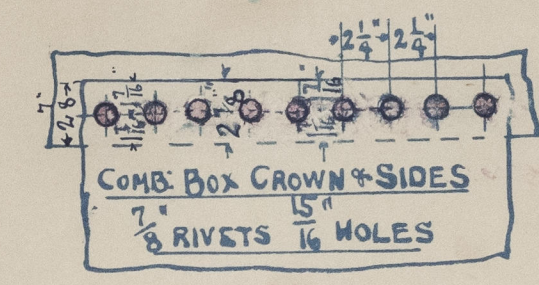 2 1/4" 2 1/4"
2 7/8"
1 7/16"
1 7/16"
2 7/8"
1 7/16"
COMB: BOX CROWN & SIDES
7/8" RIVETS 15/16" HOLES